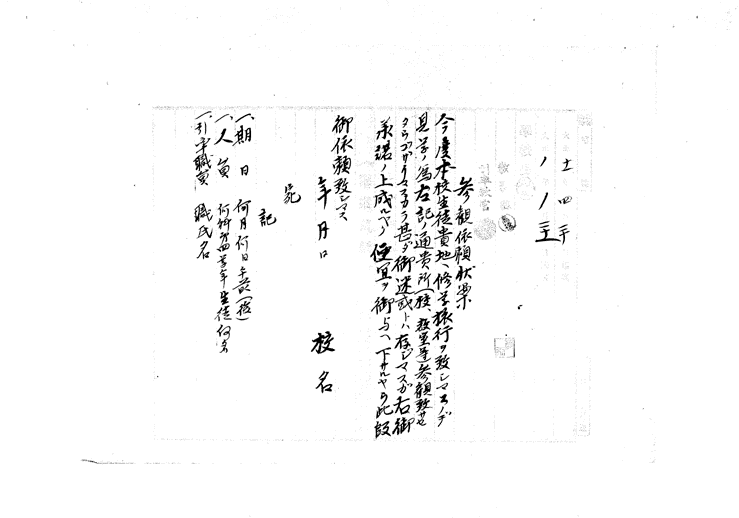 土 四 三
ノ ノ 三
参観依頼状案
今度本校生徒貴地ヘ修学旅行ヲ致シマスノデ
見学ノ為左記ノ通貴所(校、教室等参観致サセ
タウゴザイマスカラ甚ダ御迷惑トハ存ジマスガ右御
承諾ノ上成ルベク便宜ヲ御与ヘ下サルヤウ此段
御依頼致シマス
年 月 日
校 名
宛
記
一、期 日 何月何日午前(後)
一、人 員 何科第四学年生徒何名
一、引率職員 職氏名